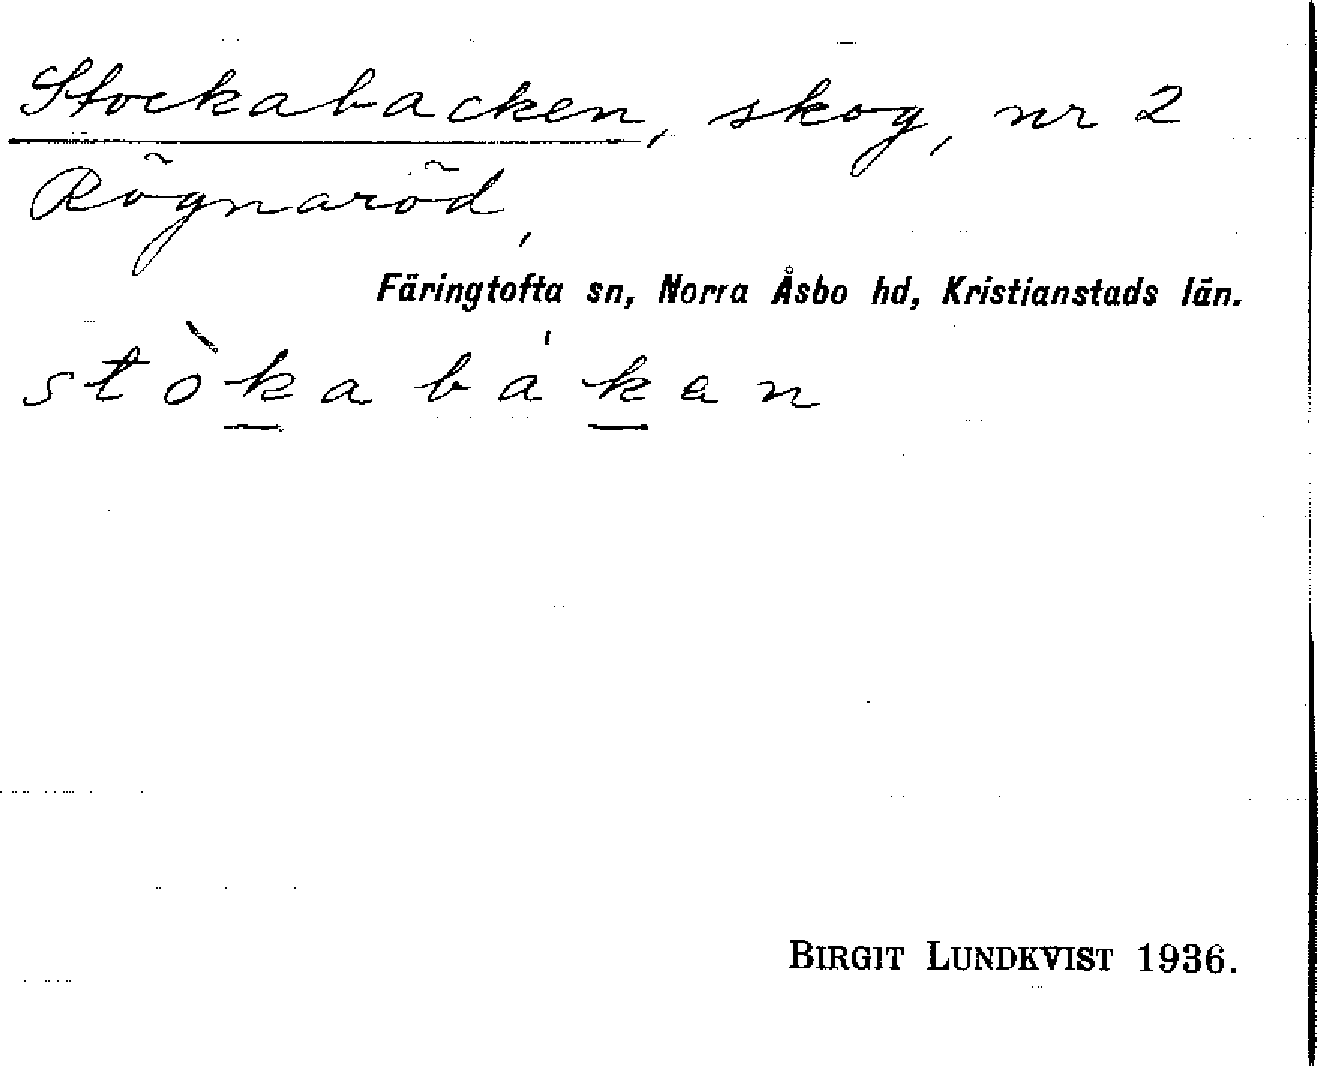 Stockabacken, skog, nr 2
Rögnaröd,
Färingtofta sn, Norra Åsbo hd, Kristianstads län.
stòkabákan
BIRGIT LUNDKVIST 1936.